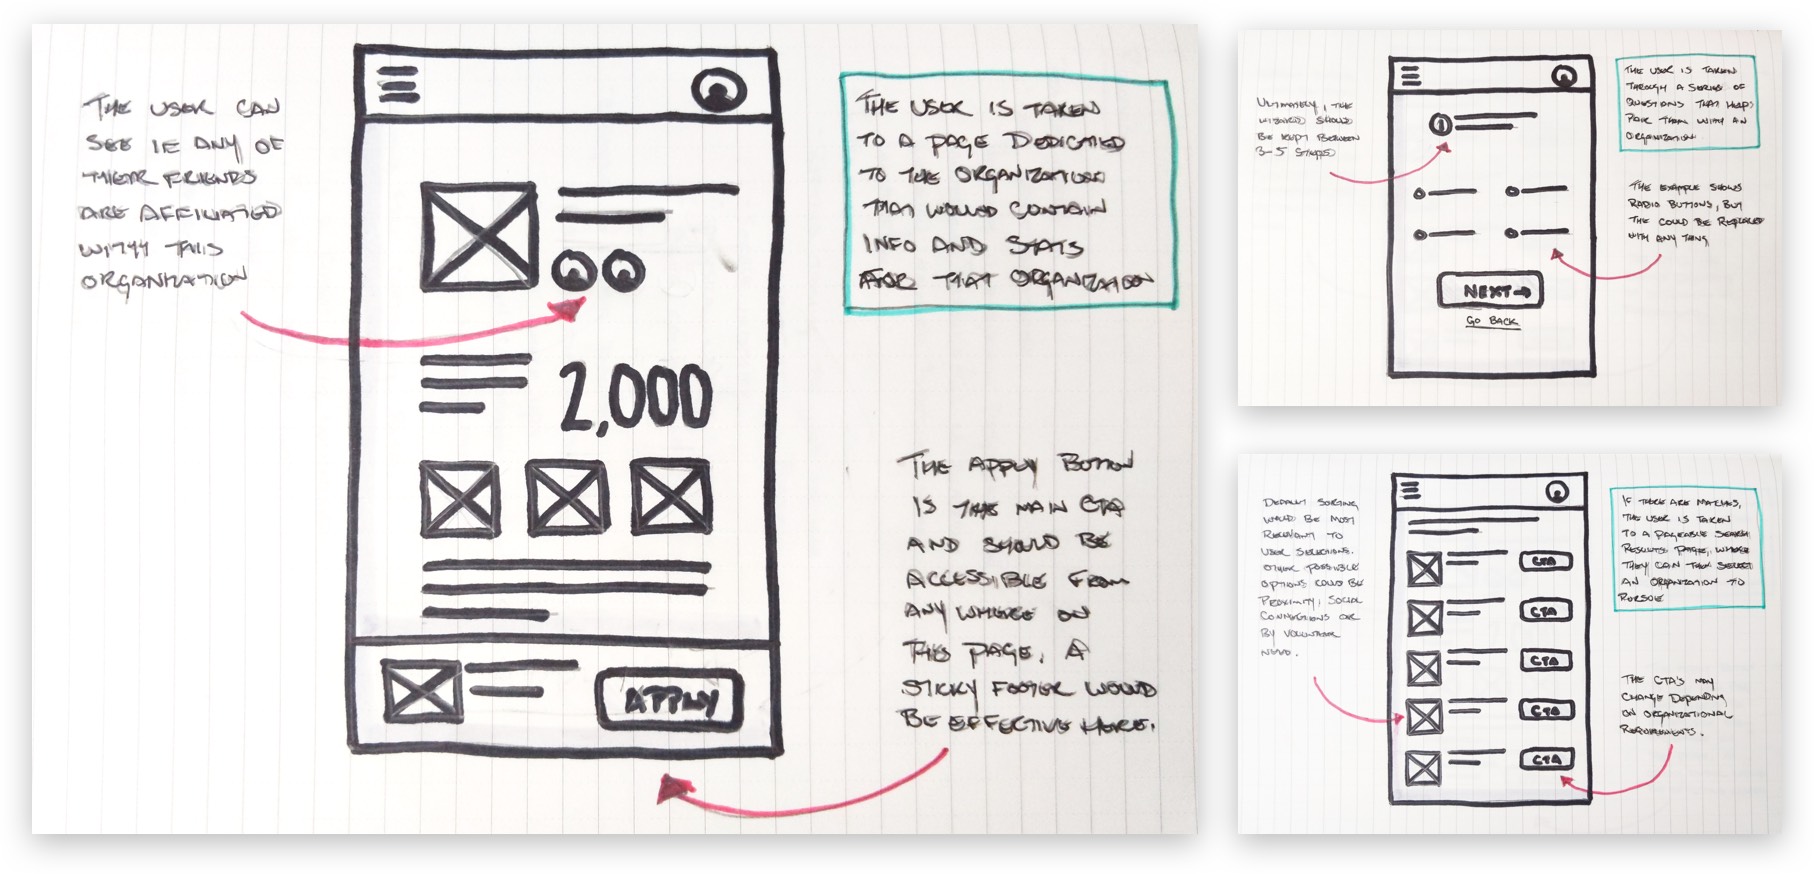 THE USER CAN
SEE IF ANY OF
THEIR FRIENDS
ARE AFFILIATED
WITH THIS
ORGANIZATION
2,000
APPLY
THE USER IS TAKEN
TO A PAGE DEDICATED
TO THE ORGANIZATION
THAT WOULD CONTAIN
INFO AND STATS
FOR THAT ORGANIZATION
THE APPLY BUTTON
IS THE MAIN CTA
AND SHOULD BE
ACCESSIBLE FROM
ANY WHERE ON
THIS PAGE. A
STICKY FOOTER WOULD
BE EFFECTIVE HERE.
ULTIMATELY, THE
WIZARD SHOULD
BE KEPT BETWEEN
3-5 STEPS
1
NEXT→
GO BACK
THE USER IS TAKEN
THROUGH A SERIES OF
QUESTIONS THAT HELPS
PAIR THEM WITH AN
ORGANIZATION
THE EXAMPLE SHOWS
RADIO BUTTONS, BUT
THE COULD BE REPLACED
WITH ANY THING
DEFAULT SORTING
WOULD BE MOST
RELEVANT TO
USER SELECTIONS.
OTHER POSSIBLE
OPTIONS COULD BE
PROXIMITY, SOCIAL
CONNECTIONS OR
BY VOLUNTEER
NEED.
CTA
CTA
CTA
CTA
CTA
IF THERE ARE MATCHES,
THE USER IS TAKEN
TO A PAGEABLE SEARCH
RESULTS PAGE, WHERE
THEY CAN THEN SELECT
AN ORGANIZATION TO
PURSUE
THE CTA'S MAY
CHANGE DEPENDING
ON ORGANIZATIONAL
REQUIREMENTS.